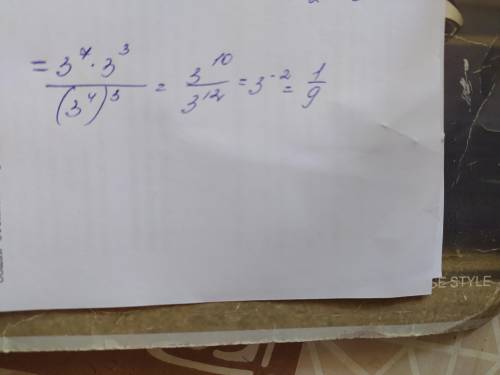 = 3^7 · 3^3 / (3^4)^3 = 3^10 / 3^12 = 3^-2 = 1/9
SE STYLE